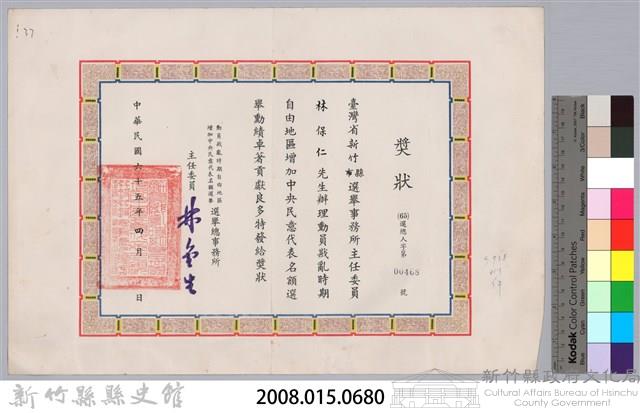 獎狀
(65)選總人字第 00468 號
臺灣省新竹縣選舉事務所主任委員
林保仁先生辦理動員戡亂時期
自由地區增加中央民意代表名額選
舉勳績卓著貢獻良多特發給獎狀
動員戡亂時期自由地區
增加中央民意代表名額選舉
選舉總事務所
主任委員 林金生
中華民國六十五年四月 日
新竹縣縣史館
2008.015.0680
新竹縣政府文化局
Cultural Affairs Bureau of Hsinchu
County Government
Kodak Color Control Patches
Blue
Cyan
Green
Yellow
Red
Magenta
White
3/Color
Black